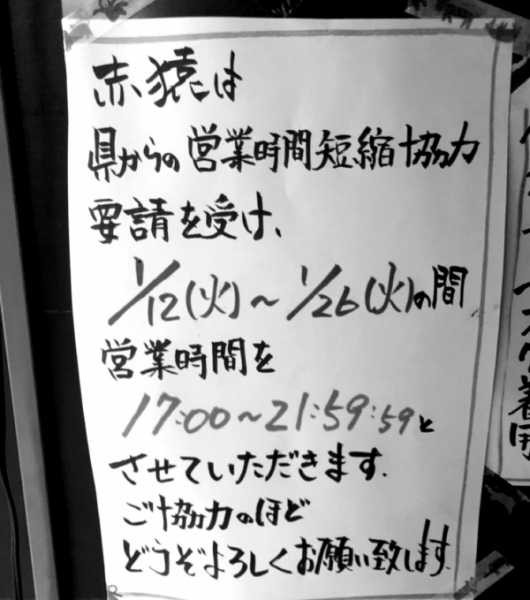 赤猿は
県からの営業時間短縮協力
要請を受け、
1/12(火)～1/26(火)の間
営業時間を
17:00～21:59:59と
させていただきます.
ご協力のほど
どうぞよろしくお願い致します